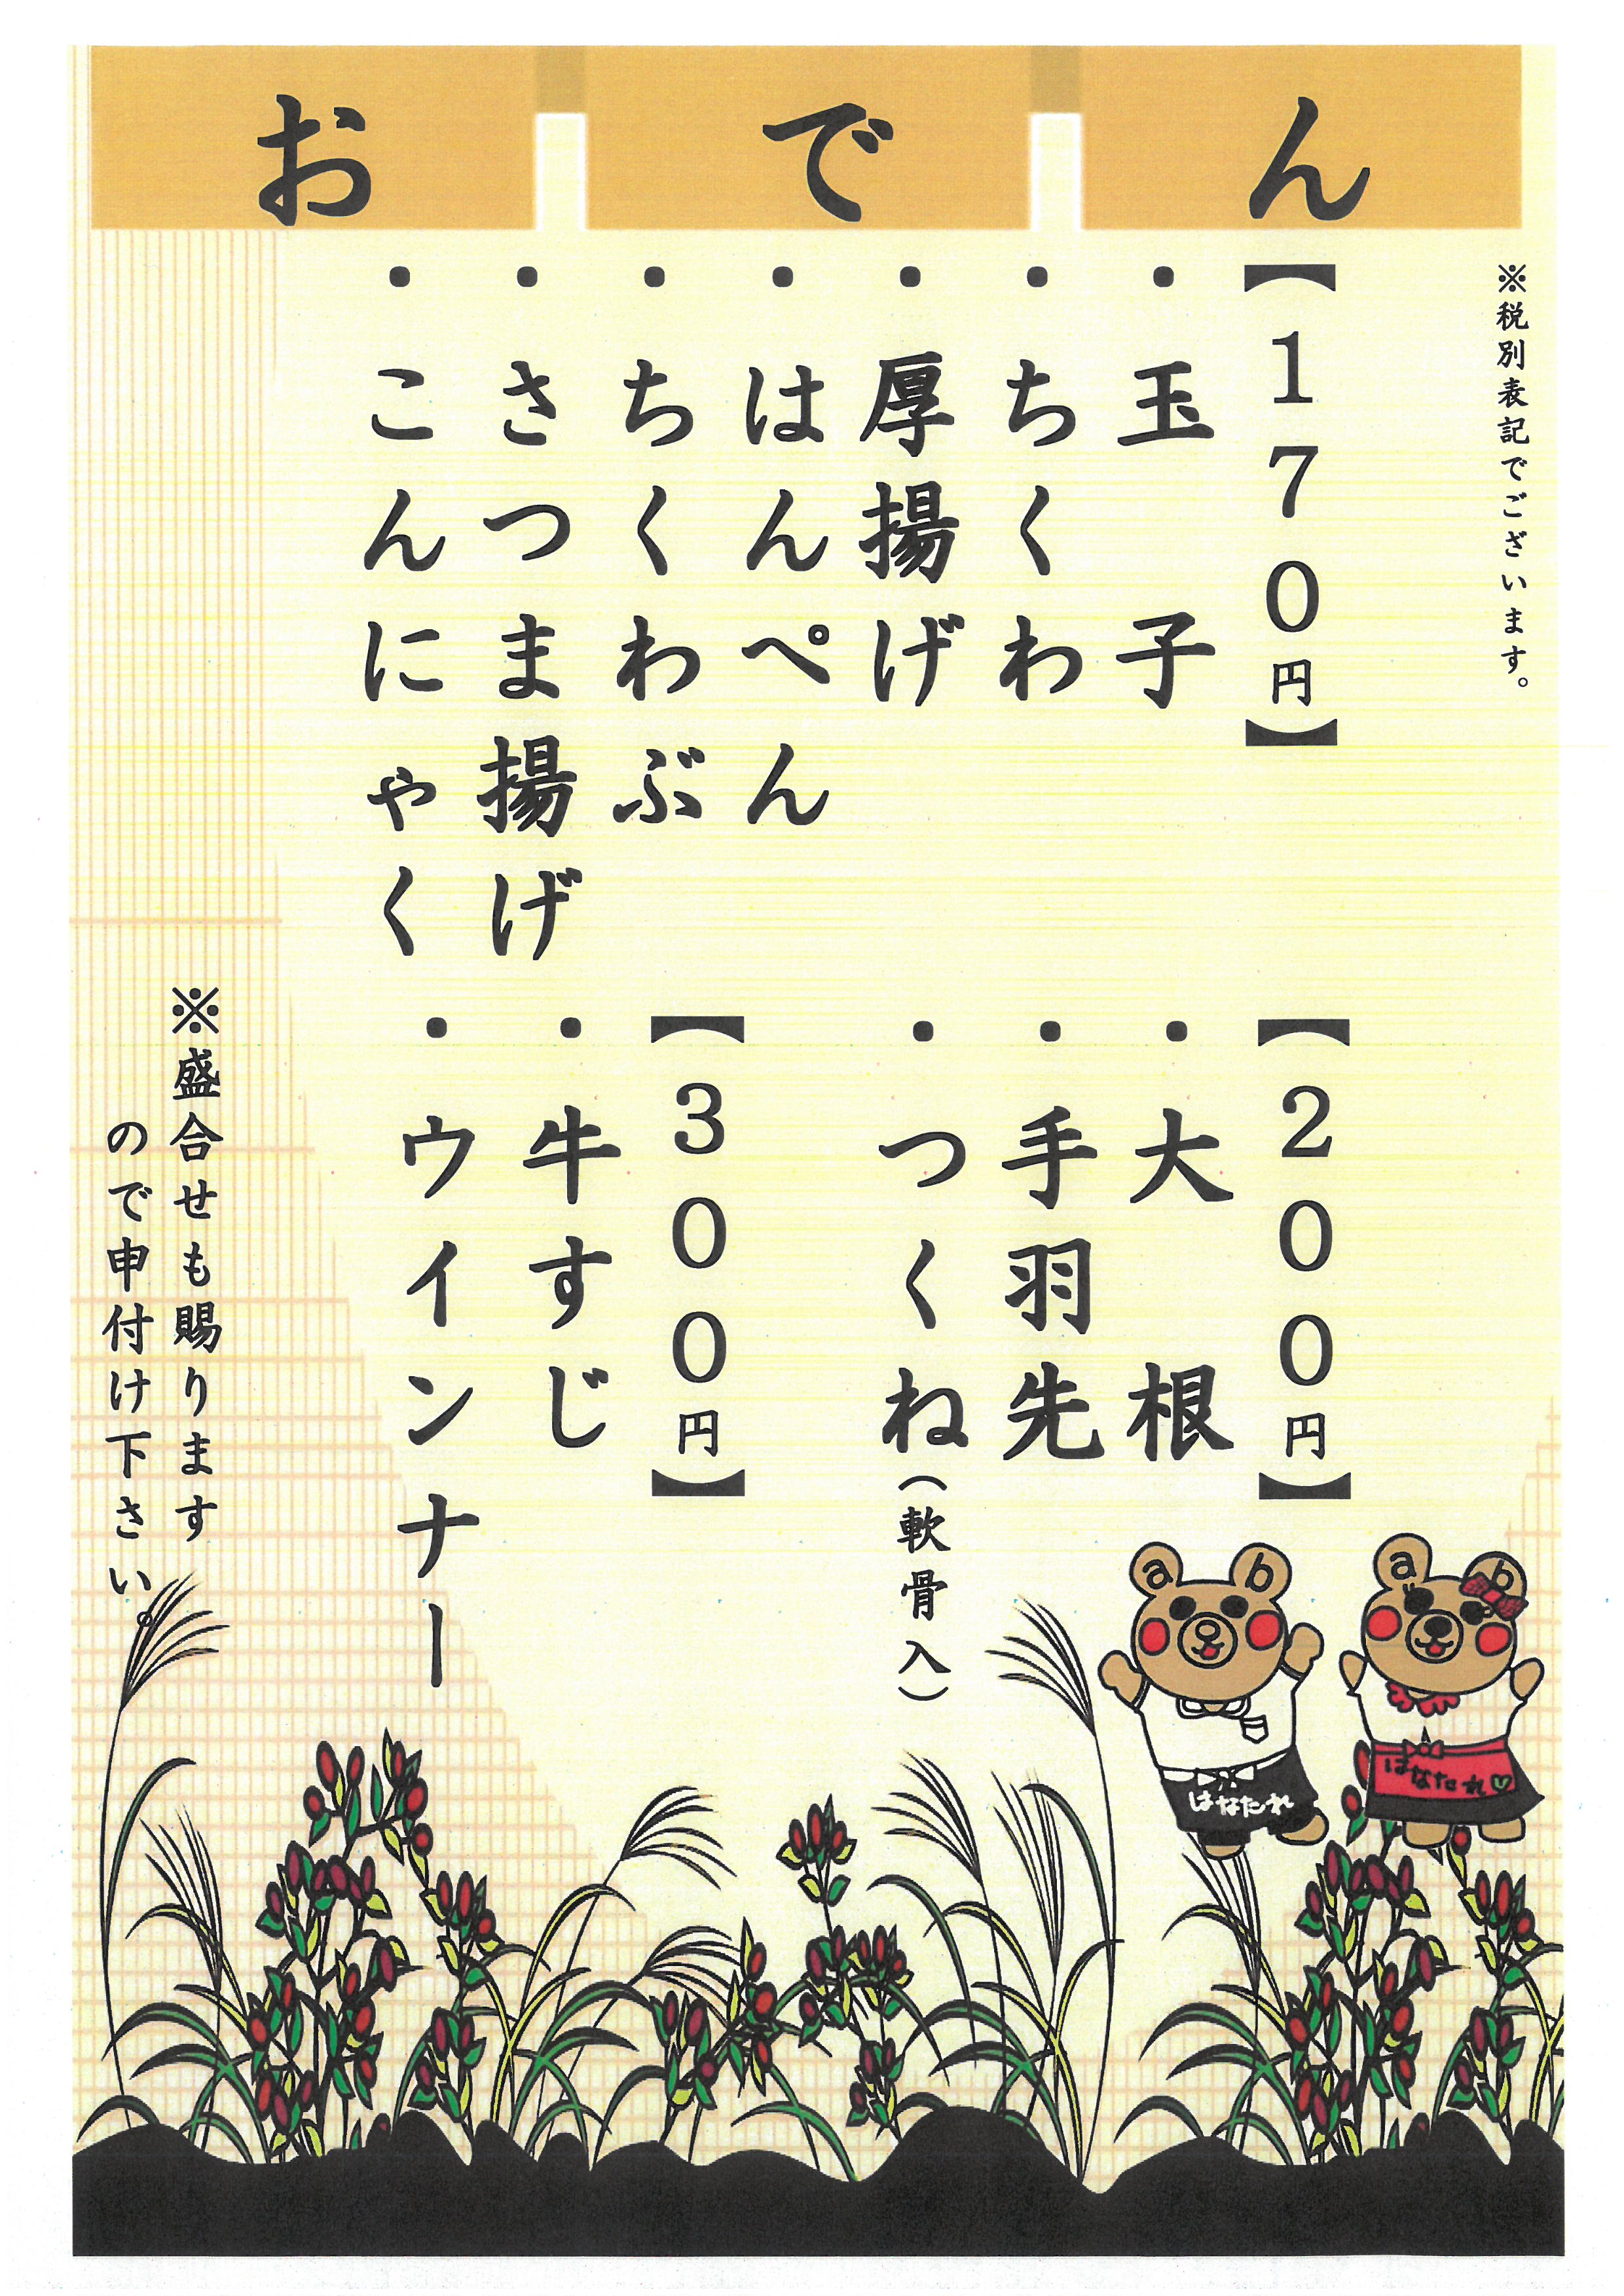 おでん
※税別表記でございます。
【170円】
・玉子
・ちくわ
・厚揚げ
・はんぺん
・ちくわぶ
・さつま揚げ
・こんにゃく
【200円】
・大根
・手羽先
・つくね(軟骨入)
【300円】
・牛すじ
・ウインナー
※盛合せも賜ります
ので申付け下さい。
a b
はなたれ
a b
はなたれ